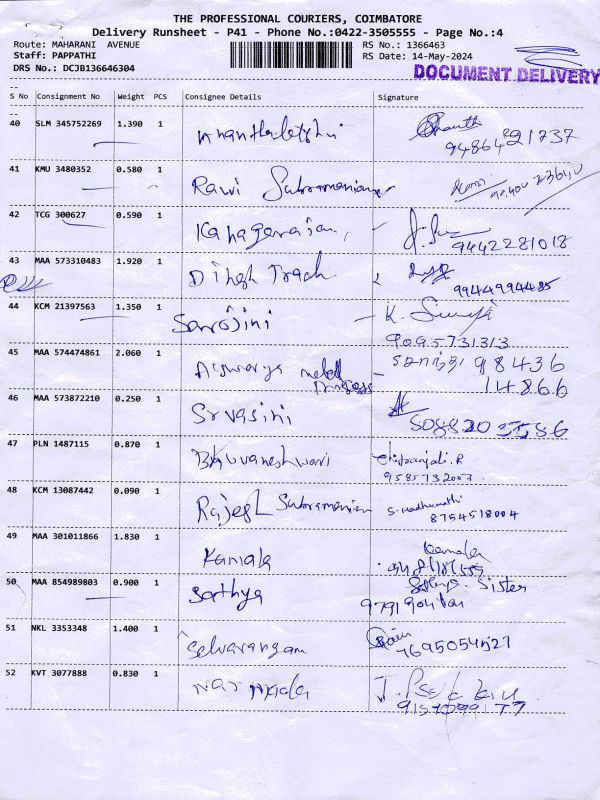 THE PROFESSIONAL COURIERS, COIMBATORE
Delivery Runsheet - P41 - Phone No.:0422-3505555 - Page No.:4
Route: MAHARANI AVENUE
RS No.: 1366463
Staff: PAPPATHI
RS Date: 14-May-2024
DRS No.: DCJB136646304
DOCUMENT DELIVERY
S No Consignment No Weight PCS Consignee Details Signature
40 SLM 345752269 1.390 1
41 KMU 3480352 0.580 1 Ravi Subramanian
42 TCG 300627 0.590 1 Kanagarajan
9442281018
43 MAA 573310483 1.920 1
99444994485
44 KCM 21397563 1.350 1 Sarojini K.
9095731313
45 MAA 574474861 2.060 1 Aiswarya metal 98436
Process 14866
46 MAA 573872210 0.250 1 Srvasini
47 PLN 1487115 0.870 1 Bhuvaneshwari
9585732007
48 KCM 13087442 0.090 1 Rajesh Subramanian S. Madhumathi
8754518004
49 MAA 301011866 1.830 1 Kamala Kamala
50 MAA 854989803 0.900 1 Sathya Sister
51 NKL 3353348 1.400 1 Selvarangam
7695054527
52 KVT 3077888 0.830 1 Narmada